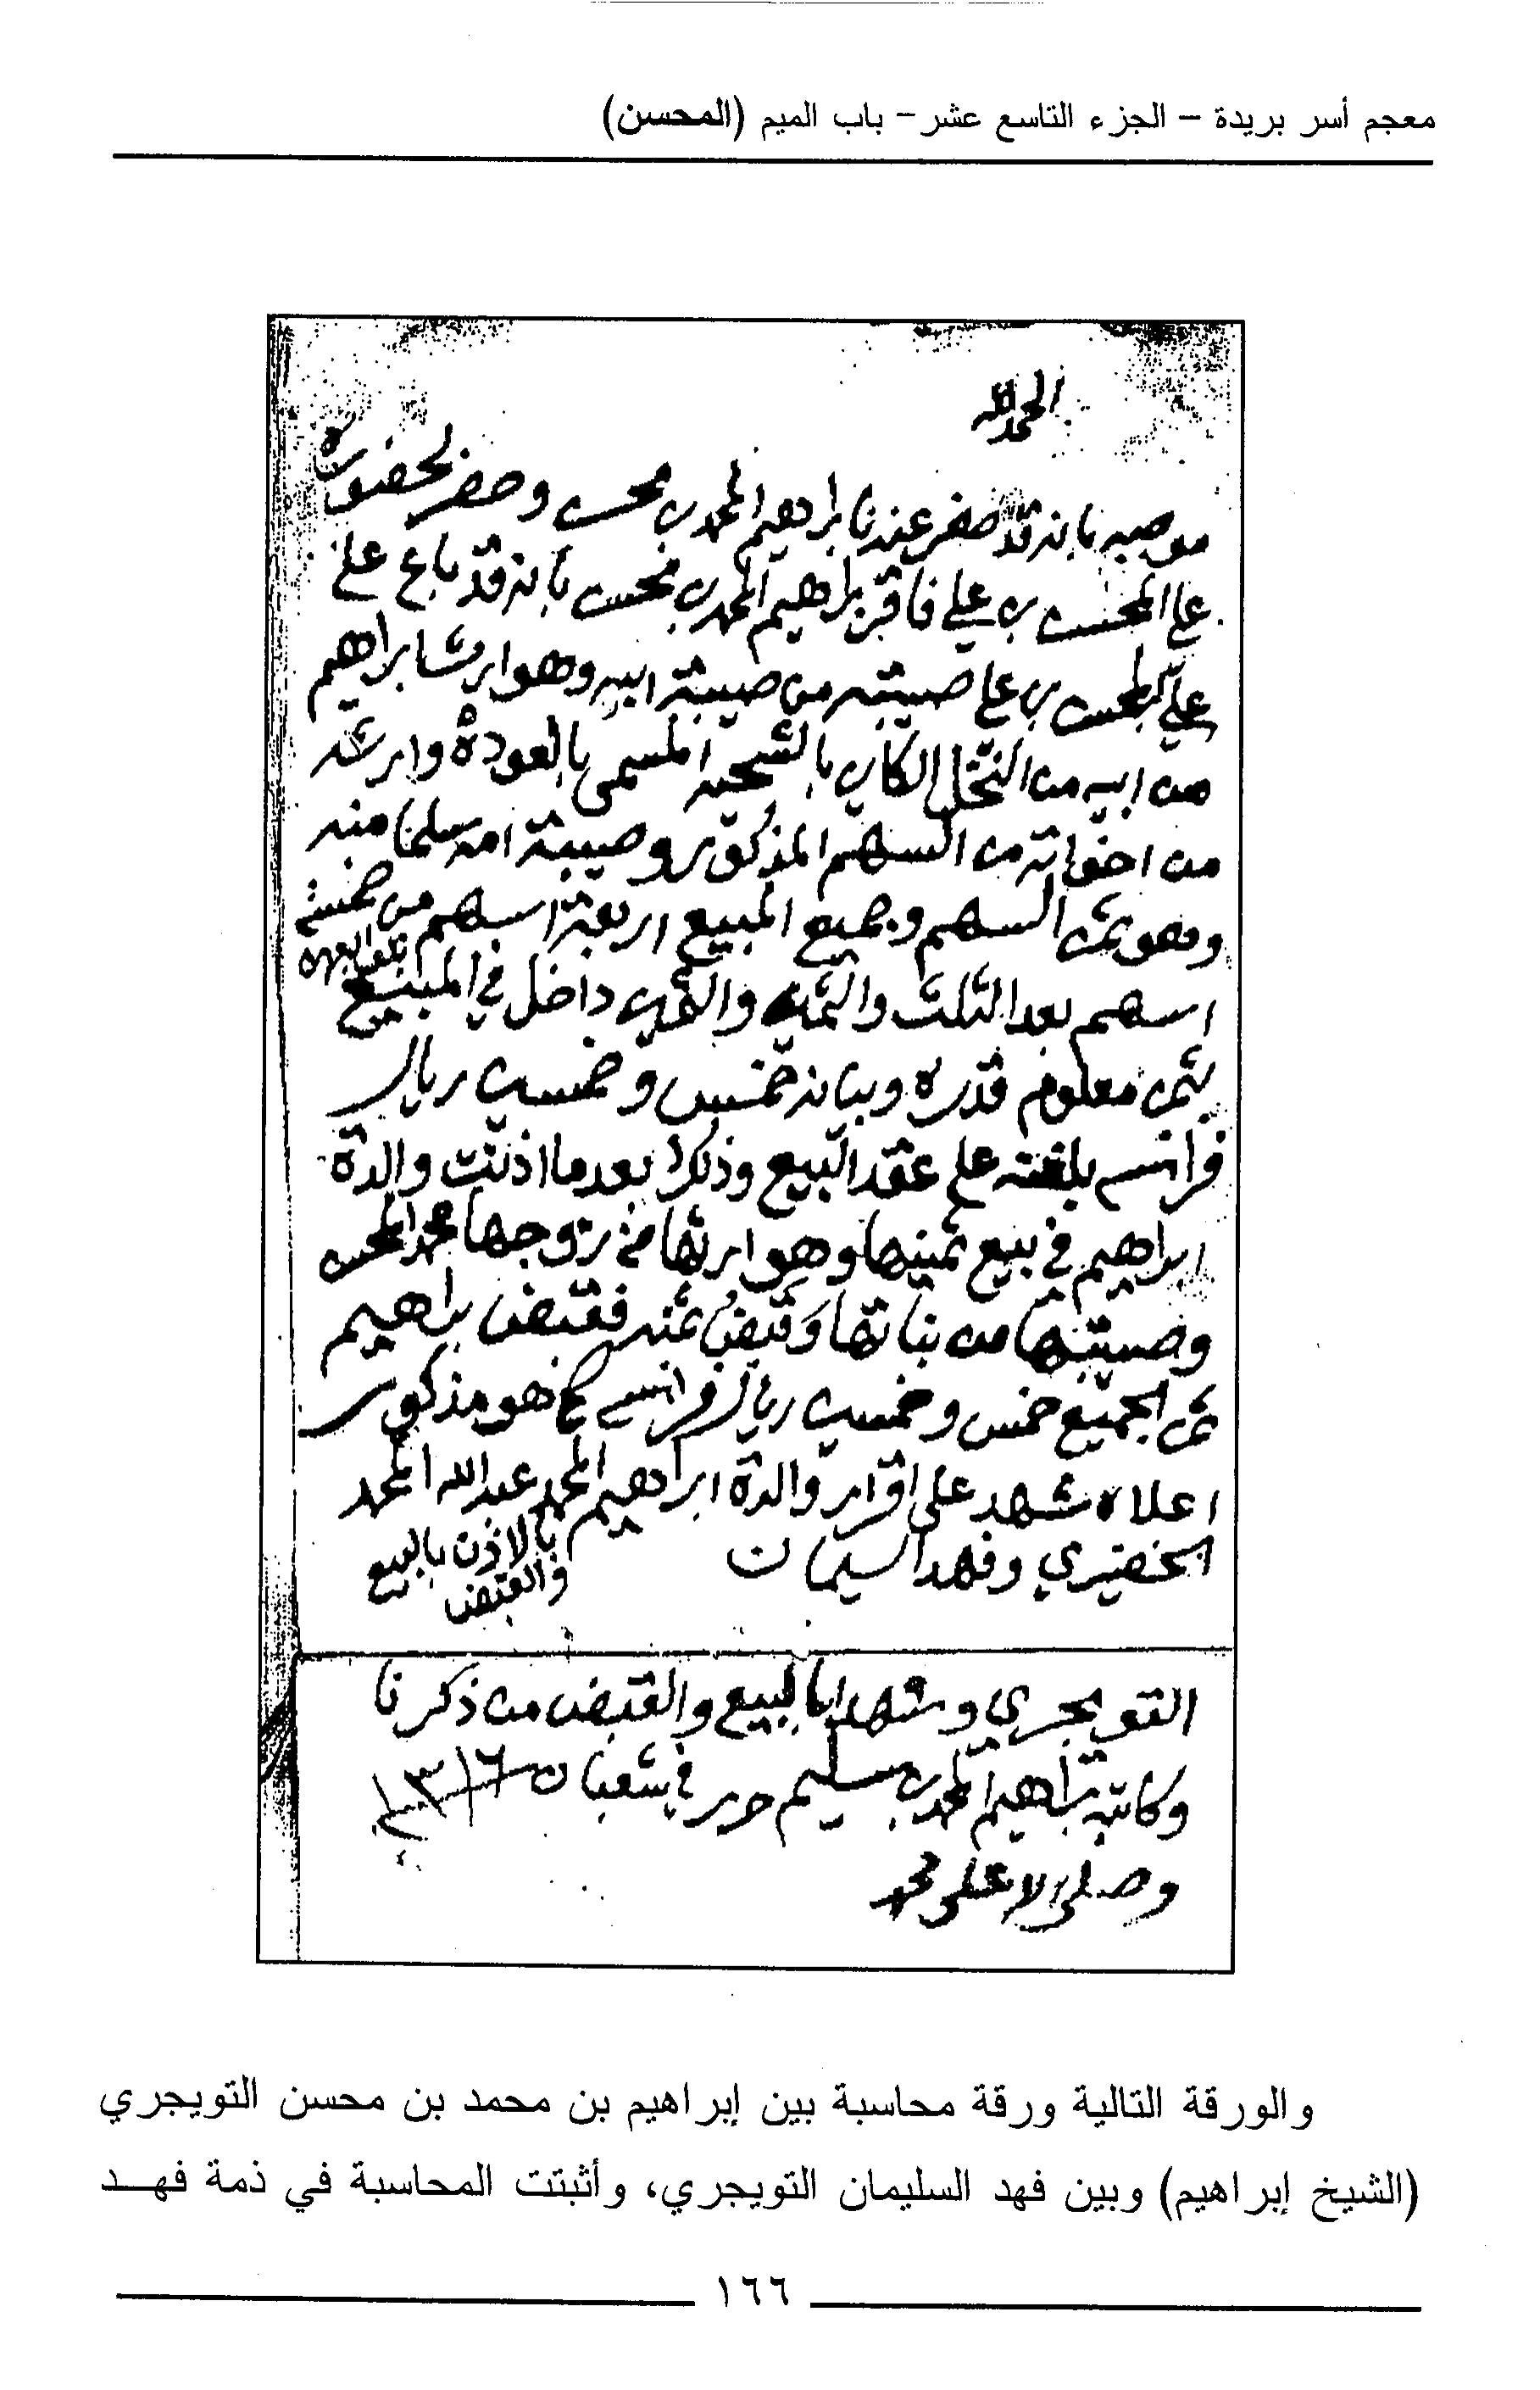 معجم أسر بريدة – الجزء التاسع عشر – باب الميم (المحسن)
الحمد لله
موجبه بانه قد حضر عندنا ابراهيم المحمد بن محسن وحضر لحضوره
علي المحسن بن علي فاقر ابراهيم المحمد بن محسن بانه قد باع على
علي المحسن بن علي صيبته من صيبة ابيه وهو ارث ابراهيم
من ابيه من النخل الكاين بالشحية المسمى بالعودة وارثه
من اخواته من السهم المذكور وصيبة امه سلما منه
وهو ثمن السهم وجميع المبيع اربعة اسهم من خمسة
اسهم بعد الثلث والثمن والثمن داخل في المبيع
بثمن معلوم قدره وبيانه خمس وخمسين ريال
فرانسه بلغنه على عقد البيع وذلك بعد ما اذنت والدة
ابراهيم في بيع ثمينها وهو ارثها من زوجها محمد المحسن
وصيبتها من بناتها وقبض ثمنه فقبض ابراهيم
ثمن الجميع خمس وخمسين ريال فرانسه كما هو مذكور
اعلاه شهد على اقرار والدة ابراهيم المحمد عبدالله المحمد
الخضيري وفهد السليمان
بالاذن بالبيع
والقبض
التويجري وشهد ايا بالبيع والقبض من ذكرنا
وكاتبه ابراهيم المحمد بن سليم حرر في شعبان ١٣١٦
وصلى الله على محمد
والورقة التالية ورقة محاسبة بين إبراهيم بن محمد بن محسن التويجري
(الشيخ إبراهيم) وبين فهد السليمان التويجري، وأثبتت المحاسبة في ذمة فهد
١٦٦